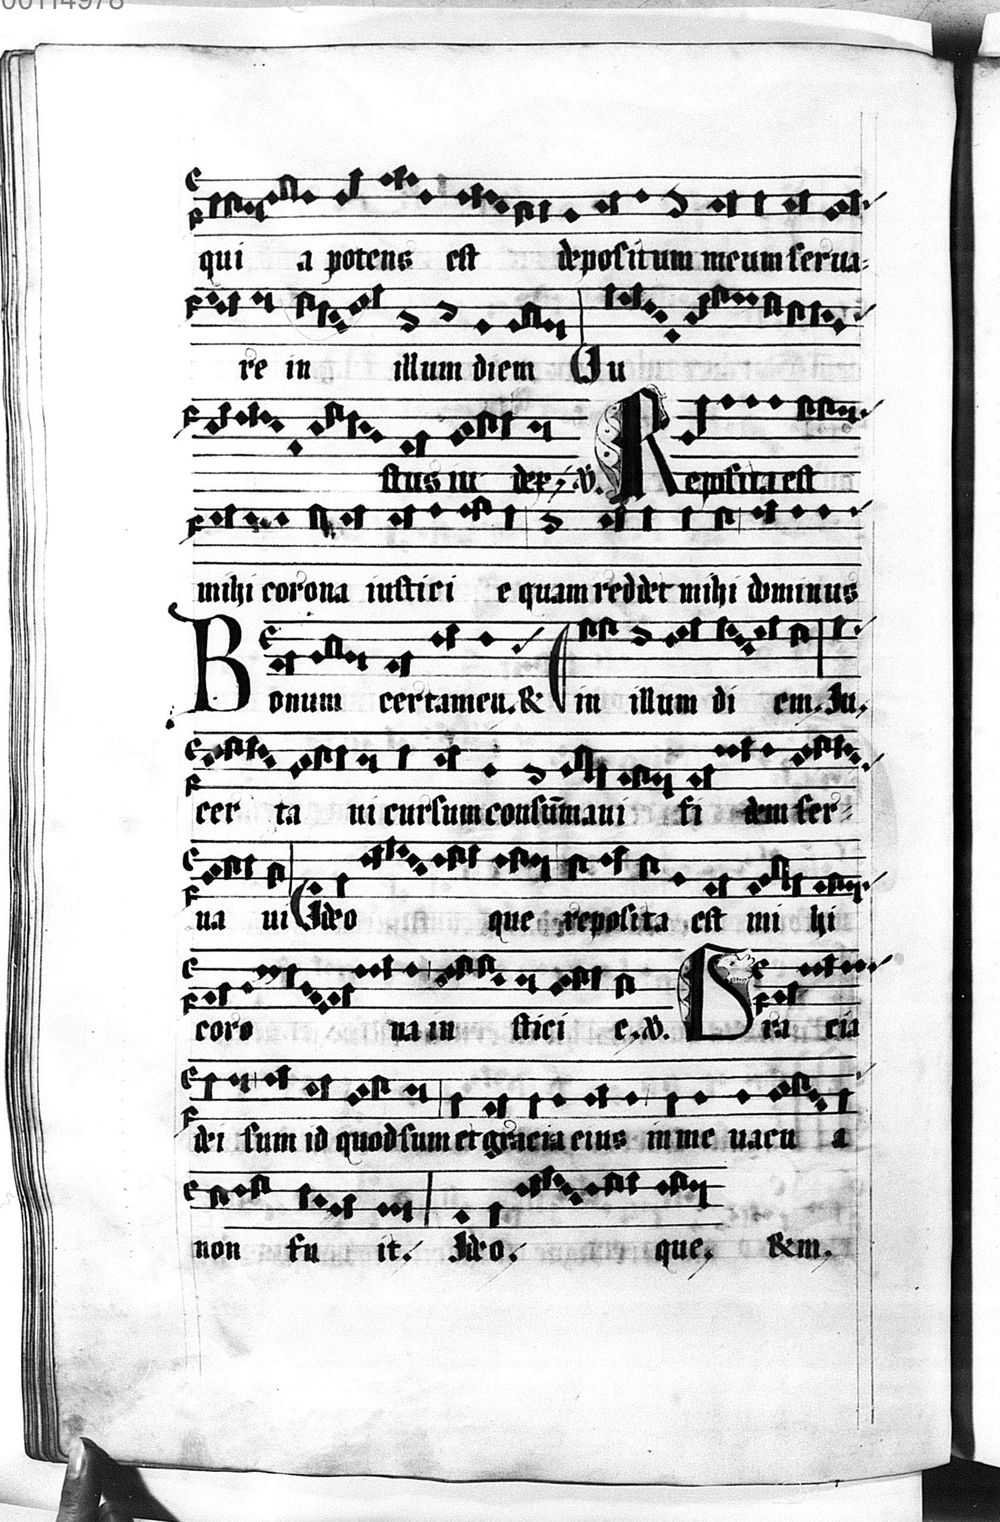 00114978
qui a potens est depositum meum serua-
re in illum diem Iu
stus iu dex. V. Reposita est
mihi corona iustici e quam reddet mihi dominus
Bonum certamen. & in illum di em. Iu.
cer ta ui cursum consūmaui fi dem ser-
ua ui Ideo que reposita est mi hi
coro na iu stici e. V. Gra cia
dei sum id quod sum et gracia eius in me uacu a
non fu it. Ideo. que.